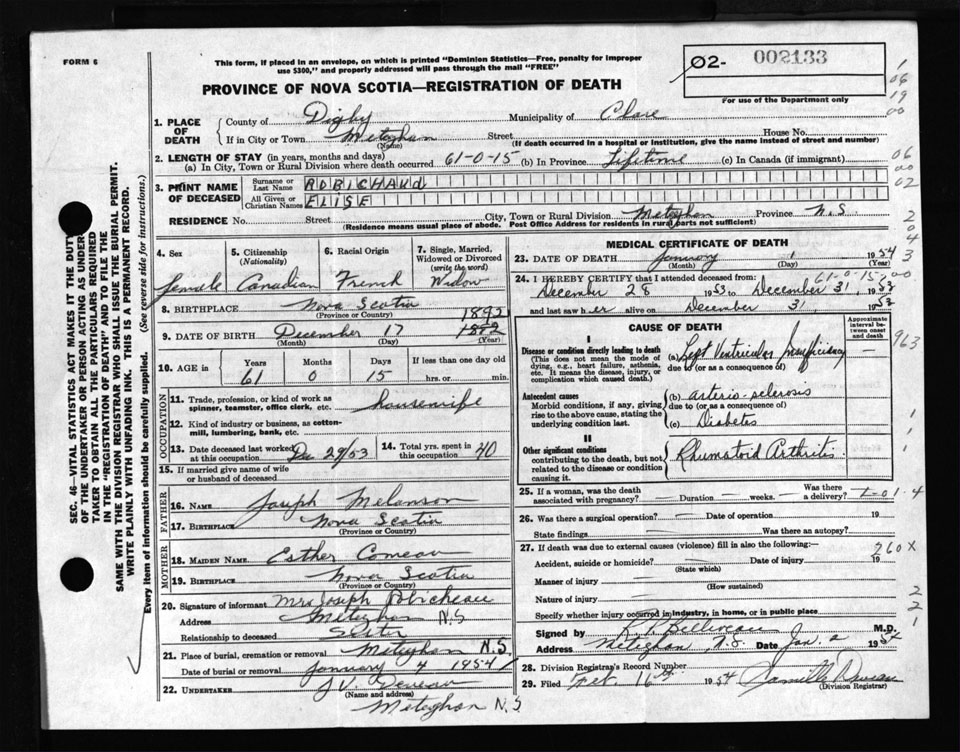 FORM 6
This form, if placed in an envelope, on which is printed "Dominion Statistics—Free, penalty for improper
use $300," and properly addressed will pass through the mail "FREE"
02- 002133
For use of the Department only
PROVINCE OF NOVA SCOTIA—REGISTRATION OF DEATH
1 06 19 00
06 00 02
2 04 3
963
1. PLACE OF DEATH
County of Digby Municipality of Clare
If in City or Town Meteghan Street House No.
(Name) (If death occurred in a hospital or institution, give the name instead of street and number)
2. LENGTH OF STAY (in years, months and days)
(a) In City, Town or Rural Division where death occurred 61-0-15 (b) In Province Lifetime (c) In Canada (if immigrant)
3. PRINT NAME OF DECEASED
Surname or Last Name ROBICHAUD
All Given or Christian Names ELISE
RESIDENCE No. Street City, Town or Rural Division Meteghan Province N.S.
(Residence means usual place of abode. Post Office Address for residents in rural parts not sufficient)
4. Sex female
5. Citizenship (Nationality) Canadian
6. Racial Origin French
7. Single, Married, Widowed or Divorced (write the word) Widow
8. BIRTHPLACE Nova Scotia
(Province or Country)
1892
9. DATE OF BIRTH December 17 1882
(Month) (Day) (Year)
10. AGE in Years Months Days If less than one day old
61 0 15 hrs. or min.
OCCUPATION
11. Trade, profession, or kind of work as spinner, teamster, office clerk, etc. housewife
12. Kind of industry or business, as cotton-mill, lumbering, bank, etc.
13. Date deceased last worked at this occupation Dec 29/53
14. Total yrs. spent in this occupation 40
15. If married give name of wife or husband of deceased
FATHER
16. NAME Joseph Melanson
17. BIRTHPLACE Nova Scotia
(Province or Country)
MOTHER
18. MAIDEN NAME Esther Comeau
19. BIRTHPLACE Nova Scotia
(Province or Country)
20. Signature of informant Mrs Joseph Robicheau
Address Meteghan N.S
Relationship to deceased Sister
21. Place of burial, cremation or removal Meteghan N.S.
Date of burial or removal January 4 1954
22. UNDERTAKER J V. Deveau
(Name and address)
Meteghan N.S
MEDICAL CERTIFICATE OF DEATH
23. DATE OF DEATH January 1 1954
(Month) (Day)
61-0-15-00
24. I HEREBY CERTIFY that I attended deceased from:
December 28 1953 to December 31, 1953
and last saw her alive on December 31, 1953
CAUSE OF DEATH
Approximate interval between onset and death
I
Disease or condition directly leading to death (a) Left Ventricular Insufficiency —
(This does not mean the mode of dying, e.g., heart failure, asthenia, etc. It means the disease, injury, or complication which caused death.)
due to (or as a consequence of)
Antecedent causes (b) arterio-sclerosis
Morbid conditions, if any, giving rise to the above cause, stating the underlying condition last.
due to (or as a consequence of)
(c) Diabetes
II
Other significant conditions Rhumatoid Arthritis
contributing to the death, but not related to the disease or condition causing it.
25. If a woman, was the death associated with pregnancy? — Duration — weeks. Was there a delivery?
1-01-4
26. Was there a surgical operation? — Date of operation 19
State findings Was there an autopsy?
27. If death was due to external causes (violence) fill in also the following:—
260X
Accident, suicide or homicide? — Date of injury 19
(State which)
Manner of injury —
(How sustained)
Nature of injury —
Specify whether injury occurred in industry, in home, or in public place
2 2 1
Signed by Belliveau M.D.
Address Meteghan, N.S. Date Jan. 2 1954
28. Division Registrar's Record Number
29. Filed Feb. 16th 1954 Camille Deveau
(Division Registrar)
SEC. 46—VITAL STATISTICS ACT MAKES IT THE DUTY
OF THE UNDERTAKER OR PERSON ACTING AS UNDER-
TAKER TO OBTAIN ALL THE PARTICULARS REQUIRED
IN THE "REGISTRATION OF DEATH" AND TO FILE THE
SAME WITH THE DIVISION REGISTRAR WHO SHALL ISSUE THE BURIAL PERMIT.
WRITE PLAINLY WITH UNFADING INK. THIS IS A PERMANENT RECORD.
Every item of information should be carefully supplied. (See reverse side for instructions.)